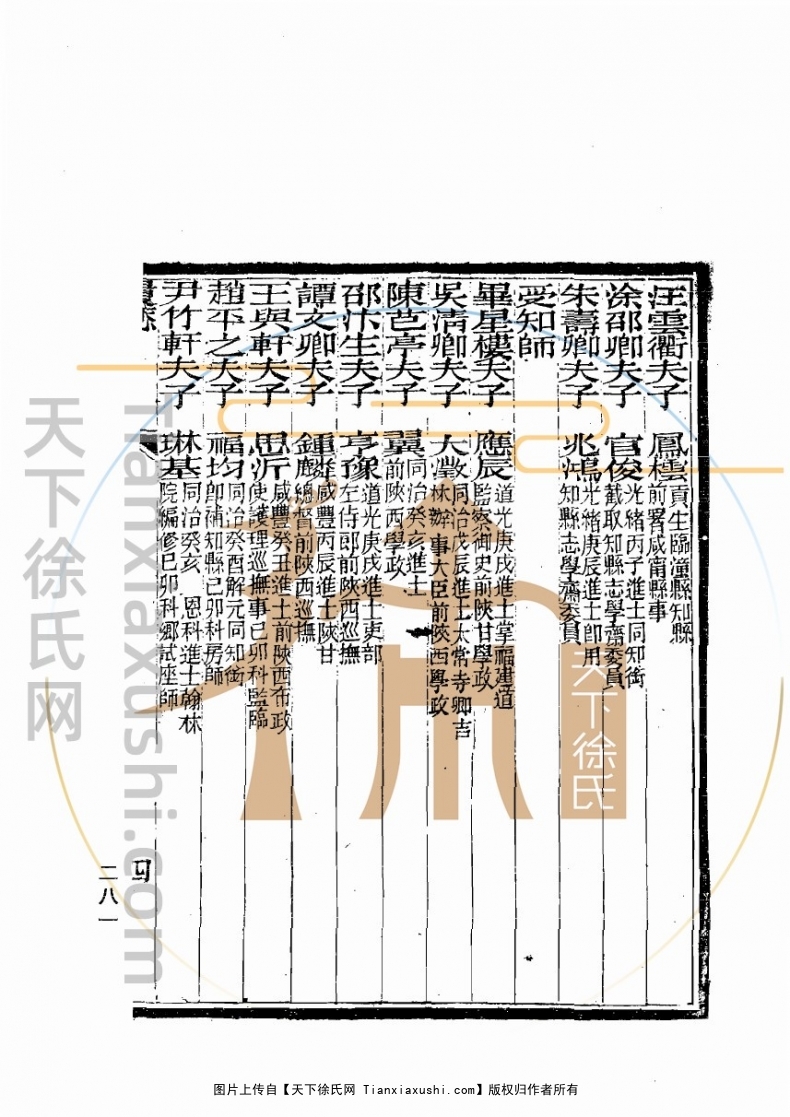 汪雲衢夫子 鳳樓 貢生臨潼縣知縣
前署咸甯縣事
涂邵卿夫子 官俊 光緒丙子進士同知銜
截取知縣志學齋委員
朱壽卿夫子 兆鴻 光緒庚辰進士即用
知縣志學齋委員
受知師
畢星樓夫子 應辰 道光庚戌進士掌福建道
監察御史前陝甘學政
吳清卿夫子 大澂 同治戊辰進士太常寺卿吉
林辦事大臣前陝西學政
陳芑亭夫子 翼 同治癸亥進士
前陝西學政
邵汴生夫子 亨豫 道光庚戌進士吏部
左侍郎前陝西巡撫
譚文卿夫子 鍾麟 咸豐丙辰進士陝甘
總督前陝西巡撫
王輿軒夫子 思沂 咸豐癸丑進士前陝西布政
使護理巡撫事己卯科監臨
趙平之夫子 福均 同治癸酉解元同知銜
即補知縣己卯科房師
尹竹軒夫子 琳基 同治癸亥 恩科進士翰林
院編修己卯科鄉試座師
四
二八一
天下徐氏网
Tianxiaxushi.com
天下徐氏
图片上传自【天下徐氏网 Tianxiaxushi.com】版权归作者所有